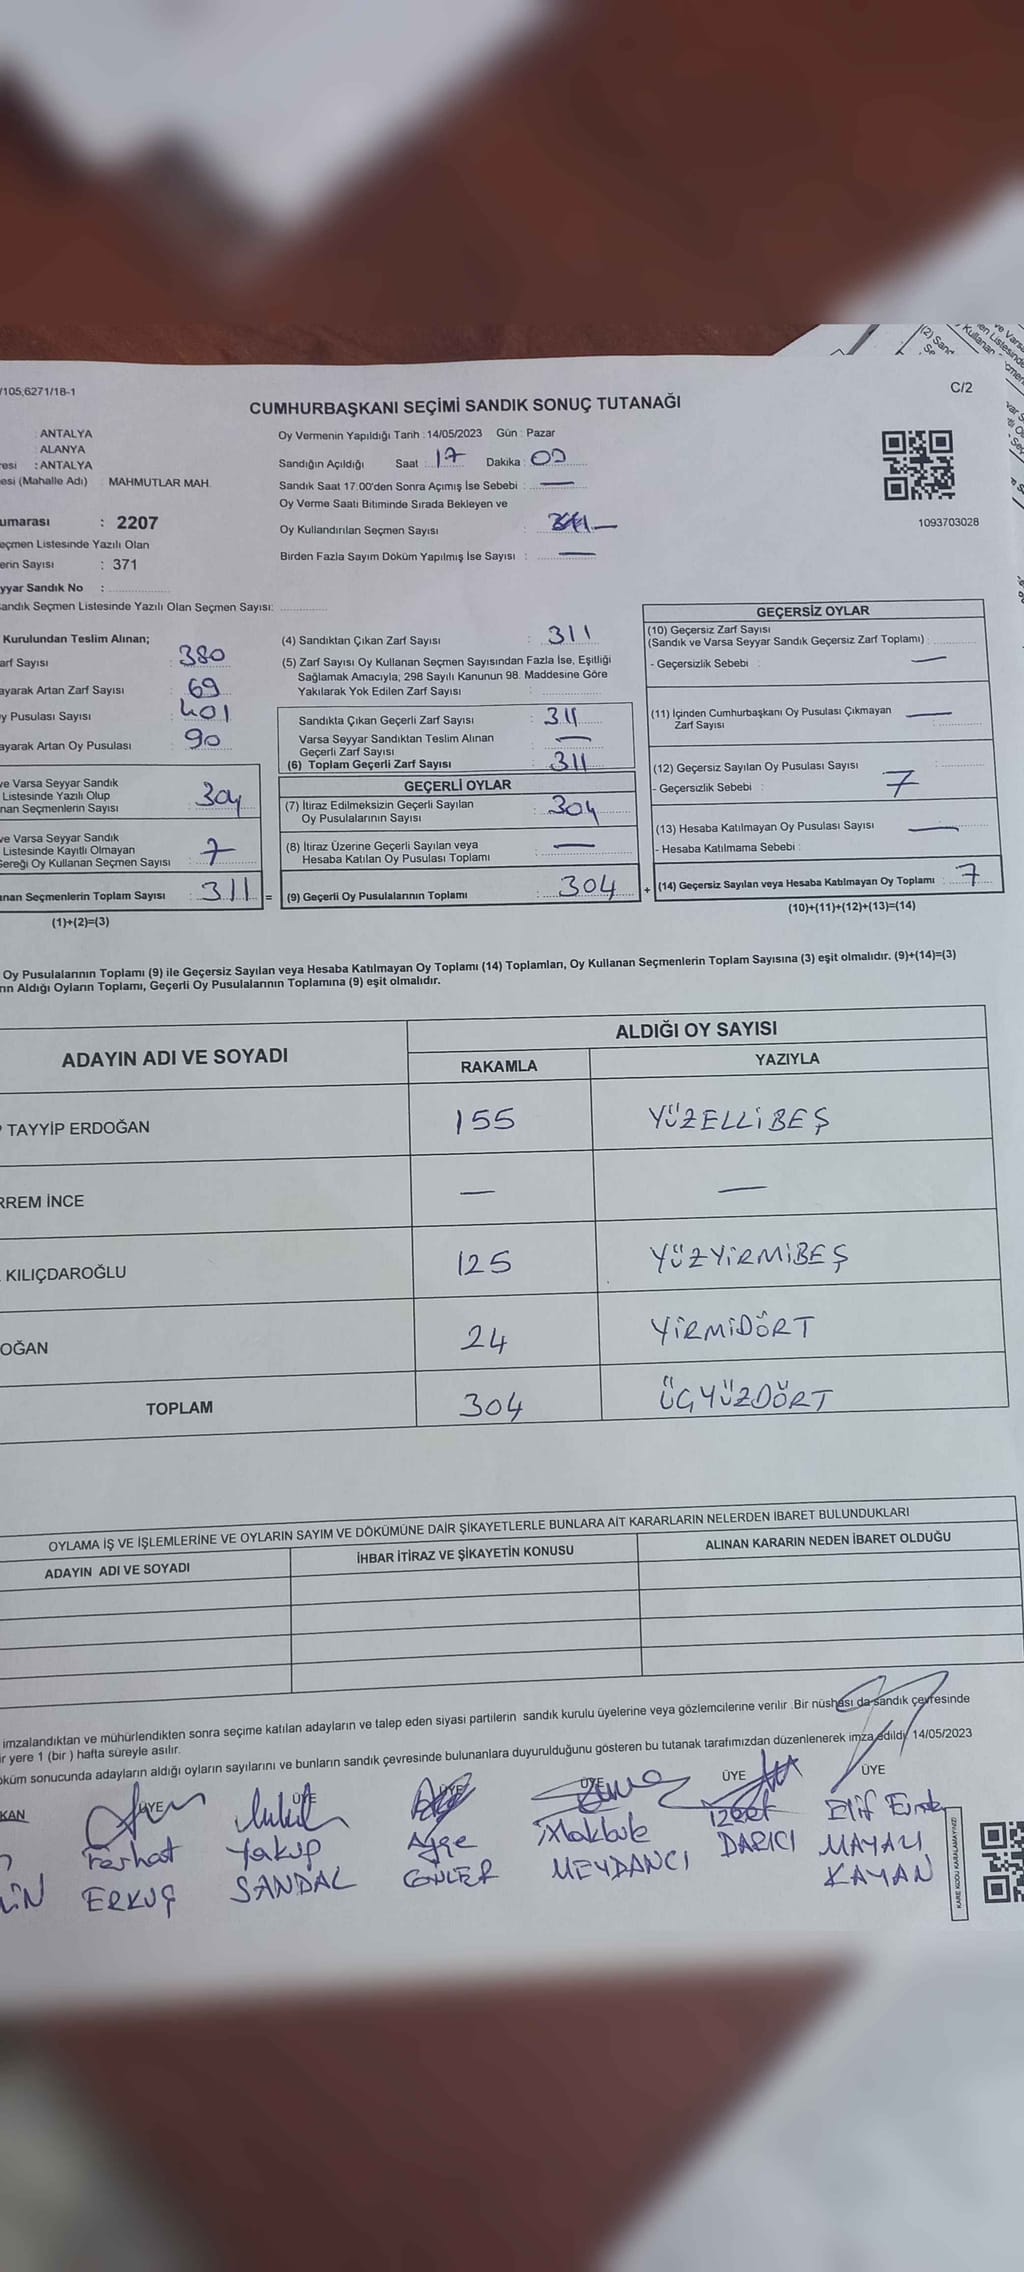 /105,6271/18-1
C/2
CUMHURBAŞKANI SEÇİMİ SANDIK SONUÇ TUTANAĞI
: ANTALYA
: ALANYA
resi : ANTALYA
esi (Mahalle Adı) : MAHMUTLAR MAH.
umarası : 2207
eçmen Listesinde Yazılı Olan
erin Sayısı : 371
yyar Sandık No :
andık Seçmen Listesinde Yazılı Olan Seçmen Sayısı:
Oy Vermenin Yapıldığı Tarih : 14/05/2023 Gün : Pazar
Sandığın Açıldığı Saat : 17 Dakika : 00
Sandık Saat 17.00'den Sonra Açımış İse Sebebi : —
Oy Verme Saati Bitiminde Sırada Bekleyen ve
Oy Kullandırılan Seçmen Sayısı : —
Birden Fazla Sayım Döküm Yapılmış İse Sayısı : —
1093703028
Kurulundan Teslim Alınan;
arf Sayısı : 380
ayarak Artan Zarf Sayısı : 69
y Pusulası Sayısı : 401
ayarak Artan Oy Pusulası : 90
ve Varsa Seyyar Sandık
Listesinde Yazılı Olup
nan Seçmenlerin Sayısı : 304
ve Varsa Seyyar Sandık
Listesinde Kayıtlı Olmayan
Gereği Oy Kullanan Seçmen Sayısı : 7
anan Seçmenlerin Toplam Sayısı : 311 =
(1)+(2)=(3)
(4) Sandıktan Çıkan Zarf Sayısı : 311
(5) Zarf Sayısı Oy Kullanan Seçmen Sayısından Fazla İse, Eşitliği
Sağlamak Amacıyla; 298 Sayılı Kanunun 98. Maddesine Göre
Yakılarak Yok Edilen Zarf Sayısı :
Sandıkta Çıkan Geçerli Zarf Sayısı : 311
Varsa Seyyar Sandıktan Teslim Alınan
Geçerli Zarf Sayısı : —
(6) Toplam Geçerli Zarf Sayısı : 311
GEÇERLİ OYLAR
(7) İtiraz Edilmeksizin Geçerli Sayılan
Oy Pusulalarının Sayısı : 304
(8) İtiraz Üzerine Geçerli Sayılan veya
Hesaba Katılan Oy Pusulası Toplamı : —
(9) Geçerli Oy Pusulalarının Toplamı : 304 +
GEÇERSİZ OYLAR
(10) Geçersiz Zarf Sayısı
(Sandık ve Varsa Seyyar Sandık Geçersiz Zarf Toplamı) :
- Geçersizlik Sebebi : —
(11) İçinden Cumhurbaşkanı Oy Pusulası Çıkmayan
Zarf Sayısı : —
(12) Geçersiz Sayılan Oy Pusulası Sayısı :
- Geçersizlik Sebebi : 7
(13) Hesaba Katılmayan Oy Pusulası Sayısı : —
- Hesaba Katılmama Sebebi :
(14) Geçersiz Sayılan veya Hesaba Katılmayan Oy Toplamı : 7
(10)+(11)+(12)+(13)=(14)
Oy Pusulalarının Toplamı (9) ile Geçersiz Sayılan veya Hesaba Katılmayan Oy Toplamı (14) Toplamları, Oy Kullanan Seçmenlerin Toplam Sayısına (3) eşit olmalıdır. (9)+(14)=(3)
rın Aldığı Oyların Toplamı, Geçerli Oy Pusulalarının Toplamına (9) eşit olmalıdır.
ADAYIN ADI VE SOYADI
ALDIĞI OY SAYISI
RAKAMLA YAZIYLA
TAYYİP ERDOĞAN 155 YÜZELLİBEŞ
RREM İNCE — —
KILIÇDAROĞLU 125 YÜZYİRMİBEŞ
OĞAN 24 YİRMİDÖRT
TOPLAM 304 ÜÇYÜZDÖRT
OYLAMA İŞ VE İŞLEMLERİNE VE OYLARIN SAYIM VE DÖKÜMÜNE DAİR ŞİKAYETLERLE BUNLARA AİT KARARLARIN NELERDEN İBARET BULUNDUKLARI
ADAYIN ADI VE SOYADI İHBAR İTİRAZ VE ŞİKAYETİN KONUSU ALINAN KARARIN NEDEN İBARET OLDUĞU
imzalandıktan ve mühürlendikten sonra seçime katılan adayların ve talep eden siyasi partilerin sandık kurulu üyelerine veya gözlemcilerine verilir .Bir nüshası da sandık çevresinde
ir yere 1 (bir ) hafta süreyle asılır.
öküm sonucunda adayların aldığı oyların sayılarını ve bunların sandık çevresinde bulunanlara duyurulduğunu gösteren bu tutanak tarafımızdan düzenlenerek imza edildi. 14/05/2023
KAN ÜYE ÜYE ÜYE ÜYE ÜYE ÜYE
Ferhat Yakup Ayşe Makbule İzzet Elif
LİN ERKUŞ SANDAL GÜLER MEYDANCI DARICI MAYALI
KAYAN
KARE KODU KARALAMAYINIZ!